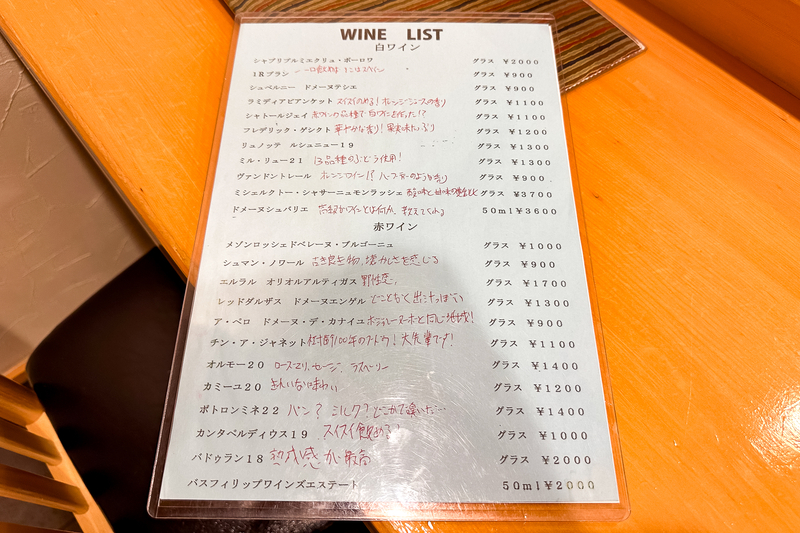 WINE LIST
白ワイン
シャブリプルミエクリュ・ボーロワ グラス ¥2000
IRブラン 一口飲めば グラス ¥900
シュベルニー ドメーヌテシエ グラス ¥900
ラミディアピアンケット スイスイのめる!オレンジジュースの香り グラス ¥1100
シャトールジェイ 赤ワインの品種で白ワインを作った!? グラス ¥1100
フレデリック・ゲシクト 華やかな香り!果実味たっぷり グラス ¥1200
リュノッテ ルシュニュー19 グラス ¥1300
ミル・リュー21 13品種のぶどう使用! グラス ¥1300
ヴァンドントレール オレンジワイン!? ハーブティーのような香り グラス ¥900
ミシェルクトー・シャサーニュモンラッシェ 酸味と甘味の グラス ¥3700
ドメーヌシュバリエ 貴腐ワインとは何か、教えてくれる 50ml¥3600
赤ワイン
メゾンロッシェドベレーヌ・ブルゴーニュ グラス ¥1000
シュマン・ノワール 古き良き物、懐かしさを感じる グラス ¥900
エルラル オリオルアルティガス 野性感, グラス ¥1700
レッドダルザス ドメーヌエンゲル どことなく出汁っぽい グラス ¥1300
ア・ペロ ドメーヌ・デ・カナイユ ボジョレーヌーボーと同じ地域! グラス ¥900
チン・ア・ジャネット 樹齢100年のブドウ!大先輩です! グラス ¥1100
オルモー20 ローズマリー、セージ、ラズベリー グラス ¥1400
カミーユ20 きれいな味わい グラス ¥1200
ボトロンミネ22 パン?ミルク?どこかで嗅いだ… グラス ¥1400
カンタペルディウス19 スイスイ飲める! グラス ¥1000
バドゥラン18 熟成感が最高 グラス ¥2000
バスフィリップワインズエステート 50ml¥2000